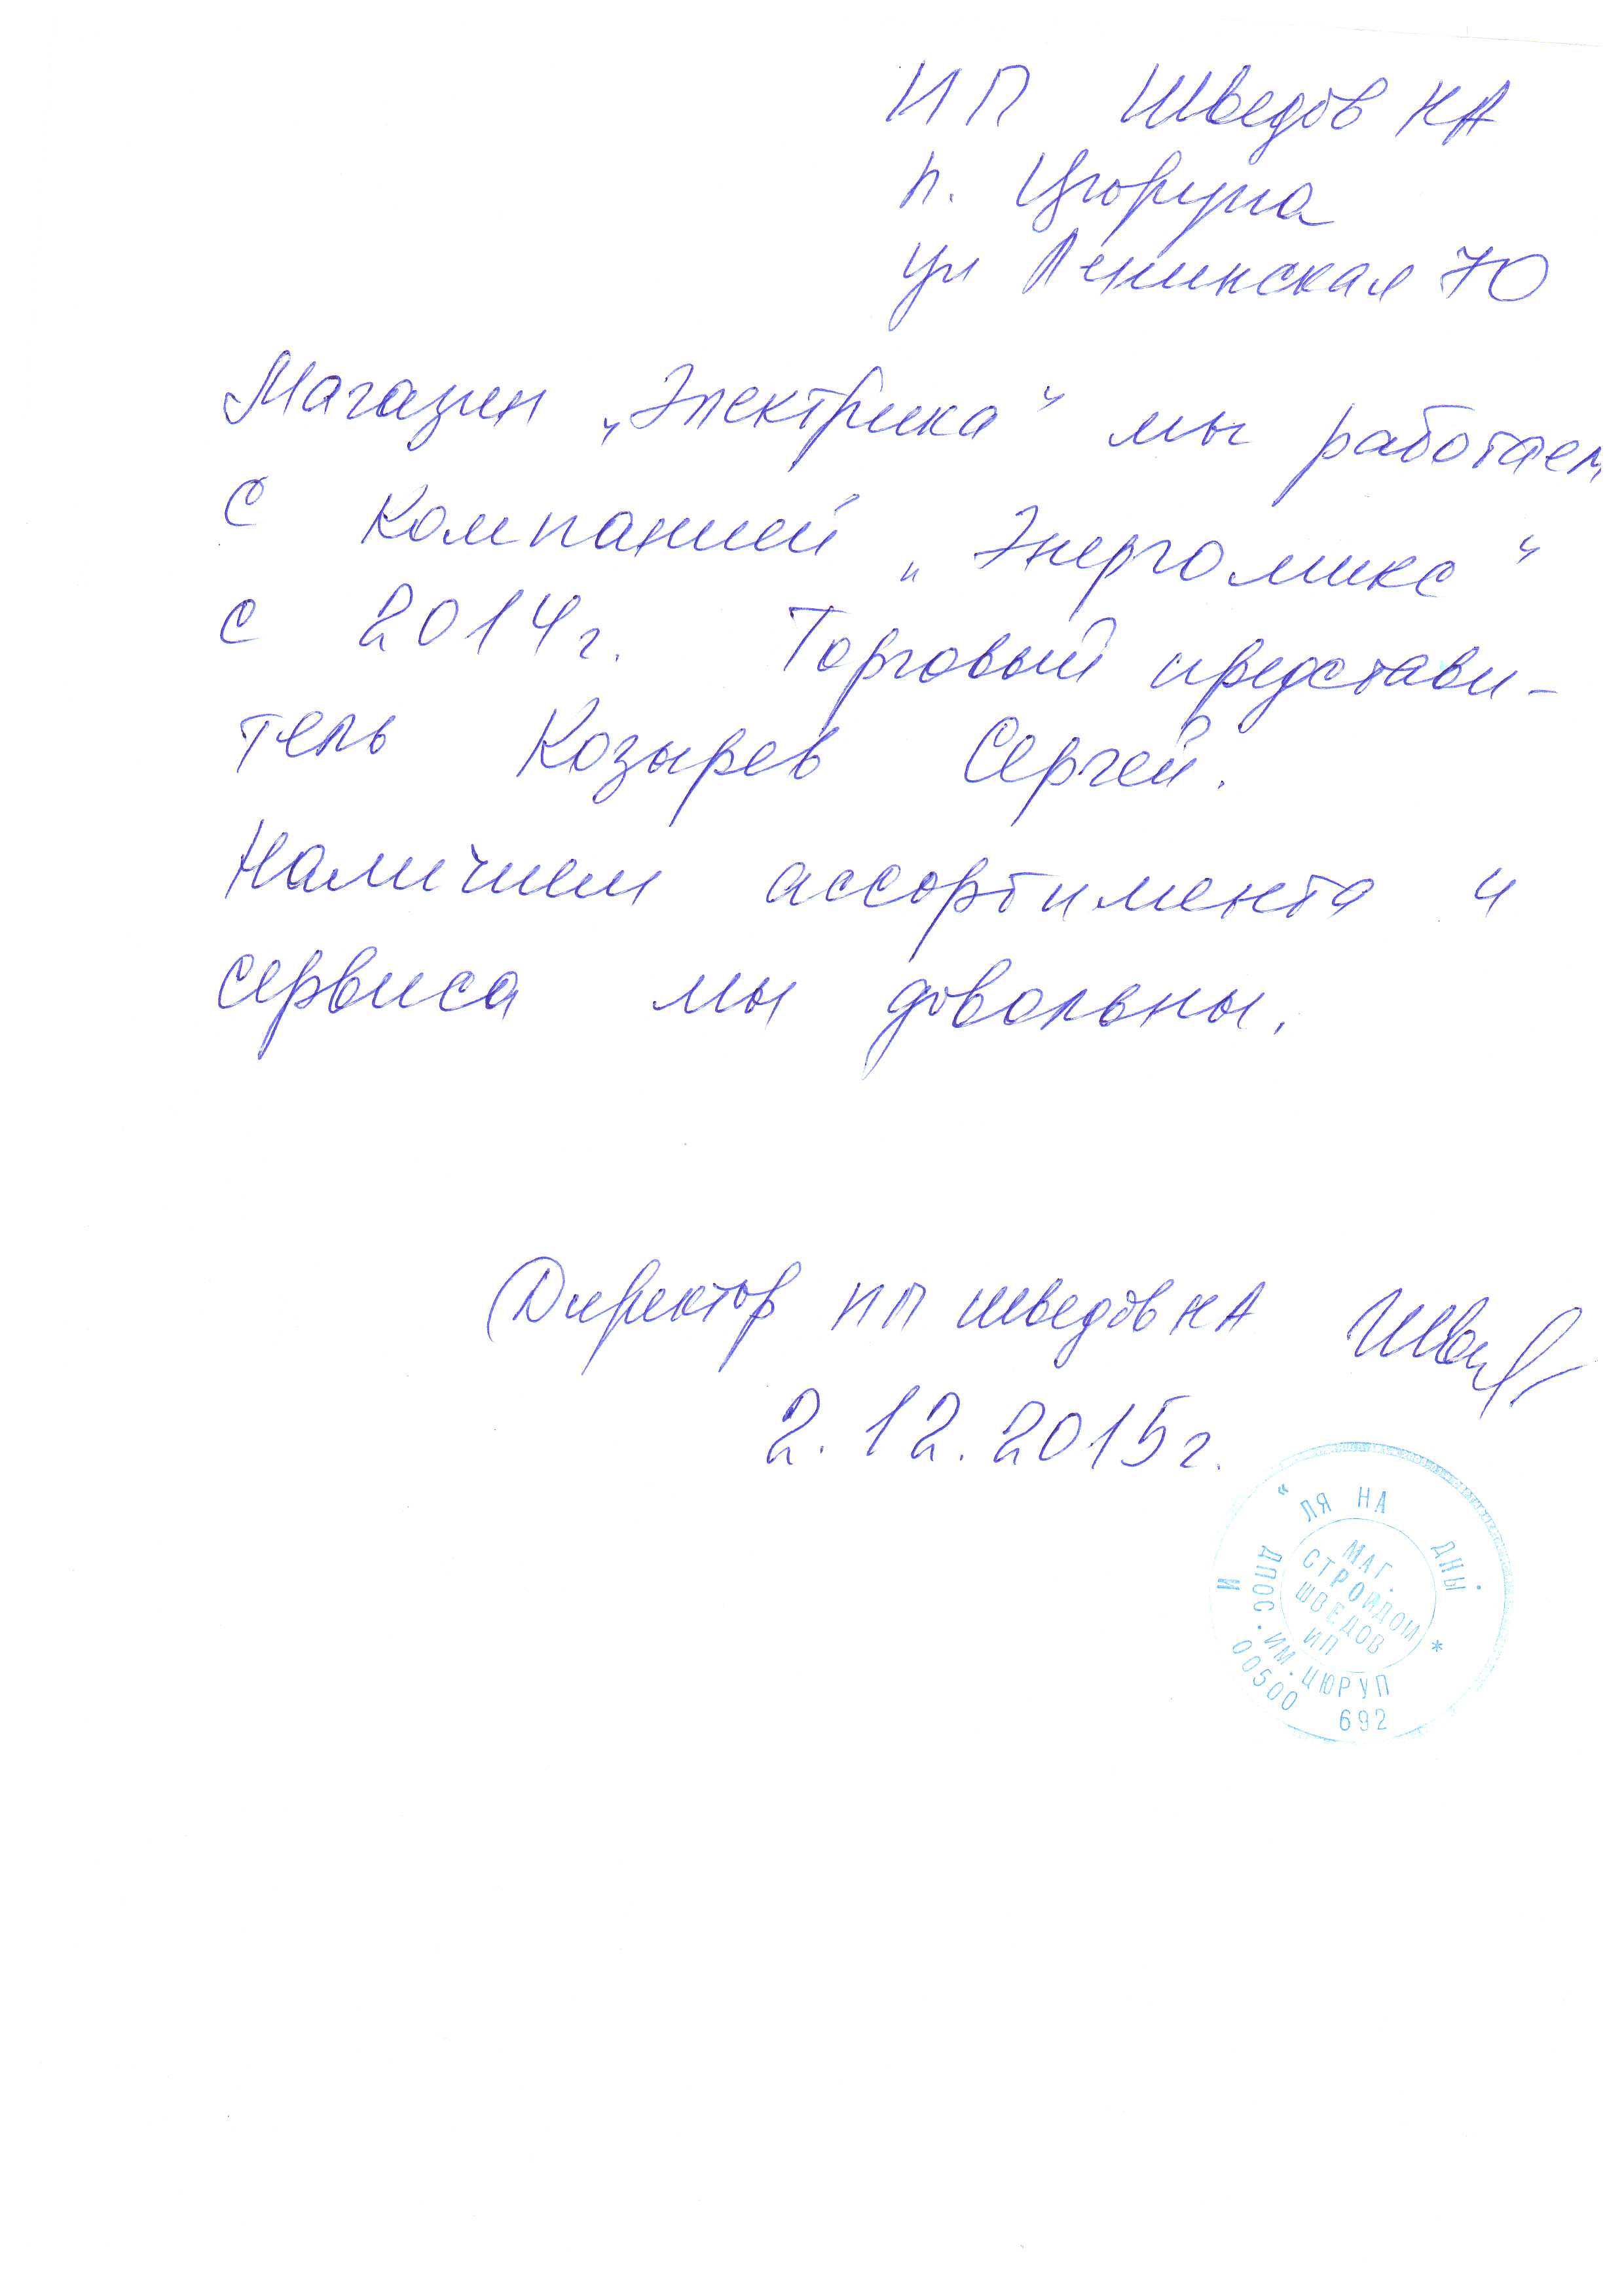 ИП Шведов НА
п. Цюрупа
ул Ленинская 70
Магазин „Электрика“ мы работаем
с компанией „Энергомикс“
с 2014г. Торговый представи-
тель Козырев Сергей.
Наличием ассортимента и
сервиса мы довольны.
Директор ИП Шведов НА
2.12.2015г.
"ЛЯ НА ДНЫ
МАГ.
СТРОЙДОМ
ШВЕДОВ
ИП
И ДПОС.ИМ.ЦЮРУП
00500 692
*